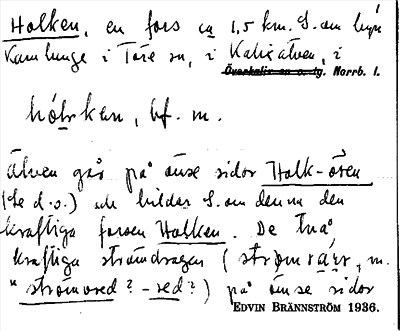 Holken, en fors ca 1,5 km. S. om byn
Kamlunge i Töre sn, i Kalixälven, i
Överkalix sn o. tg. Norrb. l.
hólrkan, bf. m.
Älven går på ömse sidor Holk-ören
(se d.o.) och bildar S. om denna den
kraftiga forsen Holken. De två
kraftiga strömdragen (strömrarr, m.
"strömvred? -red?) på ömse sidor
EDVIN BRÄNNSTRÖM 1936.